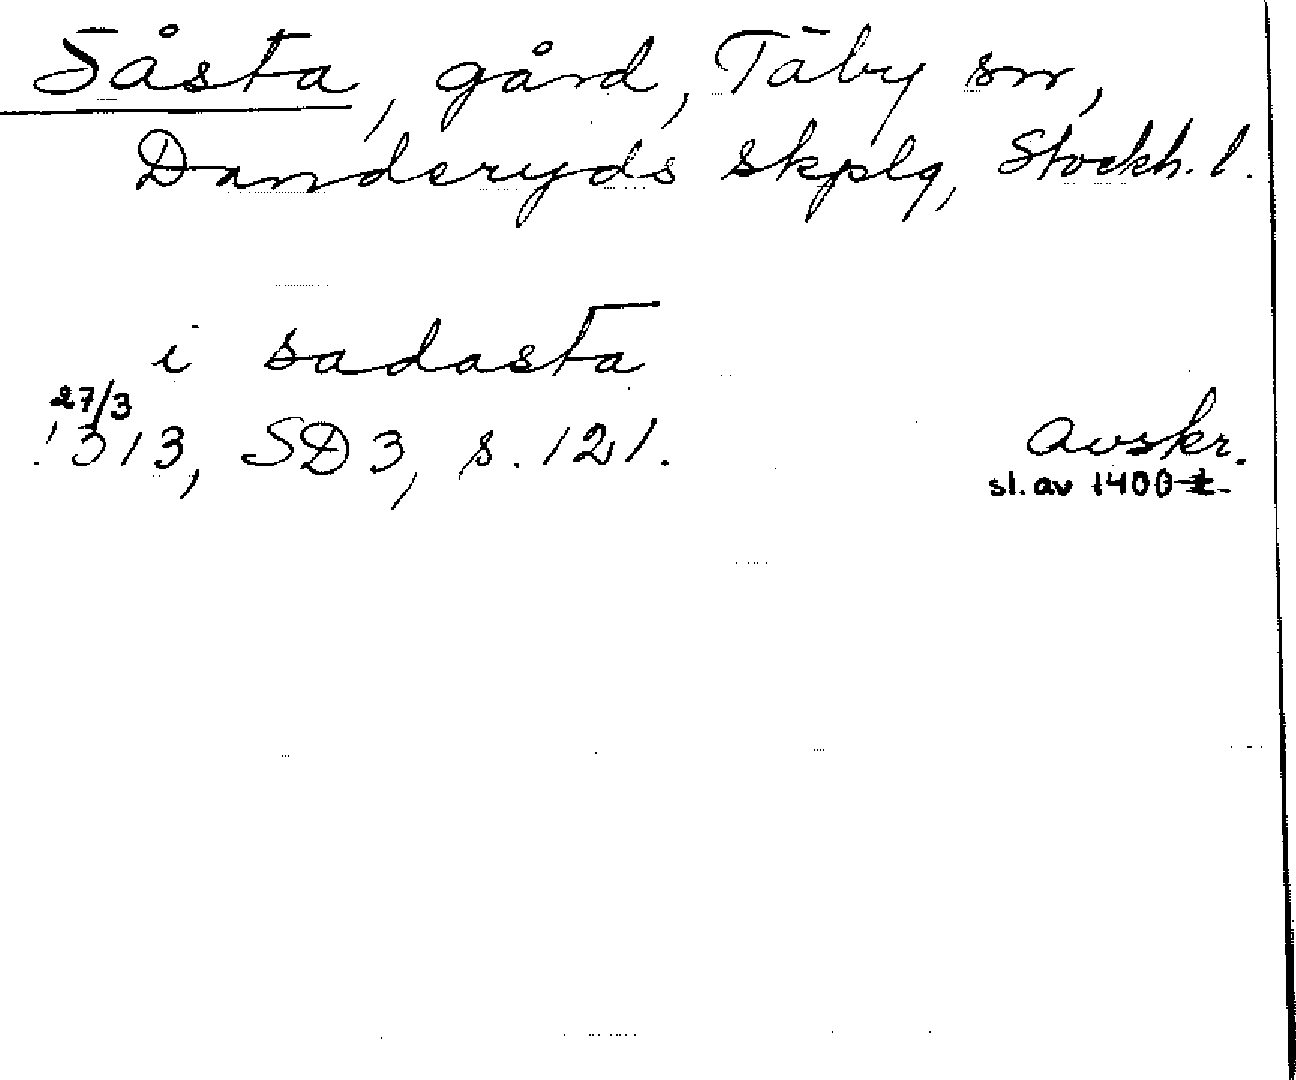 Såsta, gård, Täby sn,
Danderyds skplg, Stockh. l.
i sadasta
27/3
1313, SD 3, s. 121.
Avskr.
sl. av 1400-t.